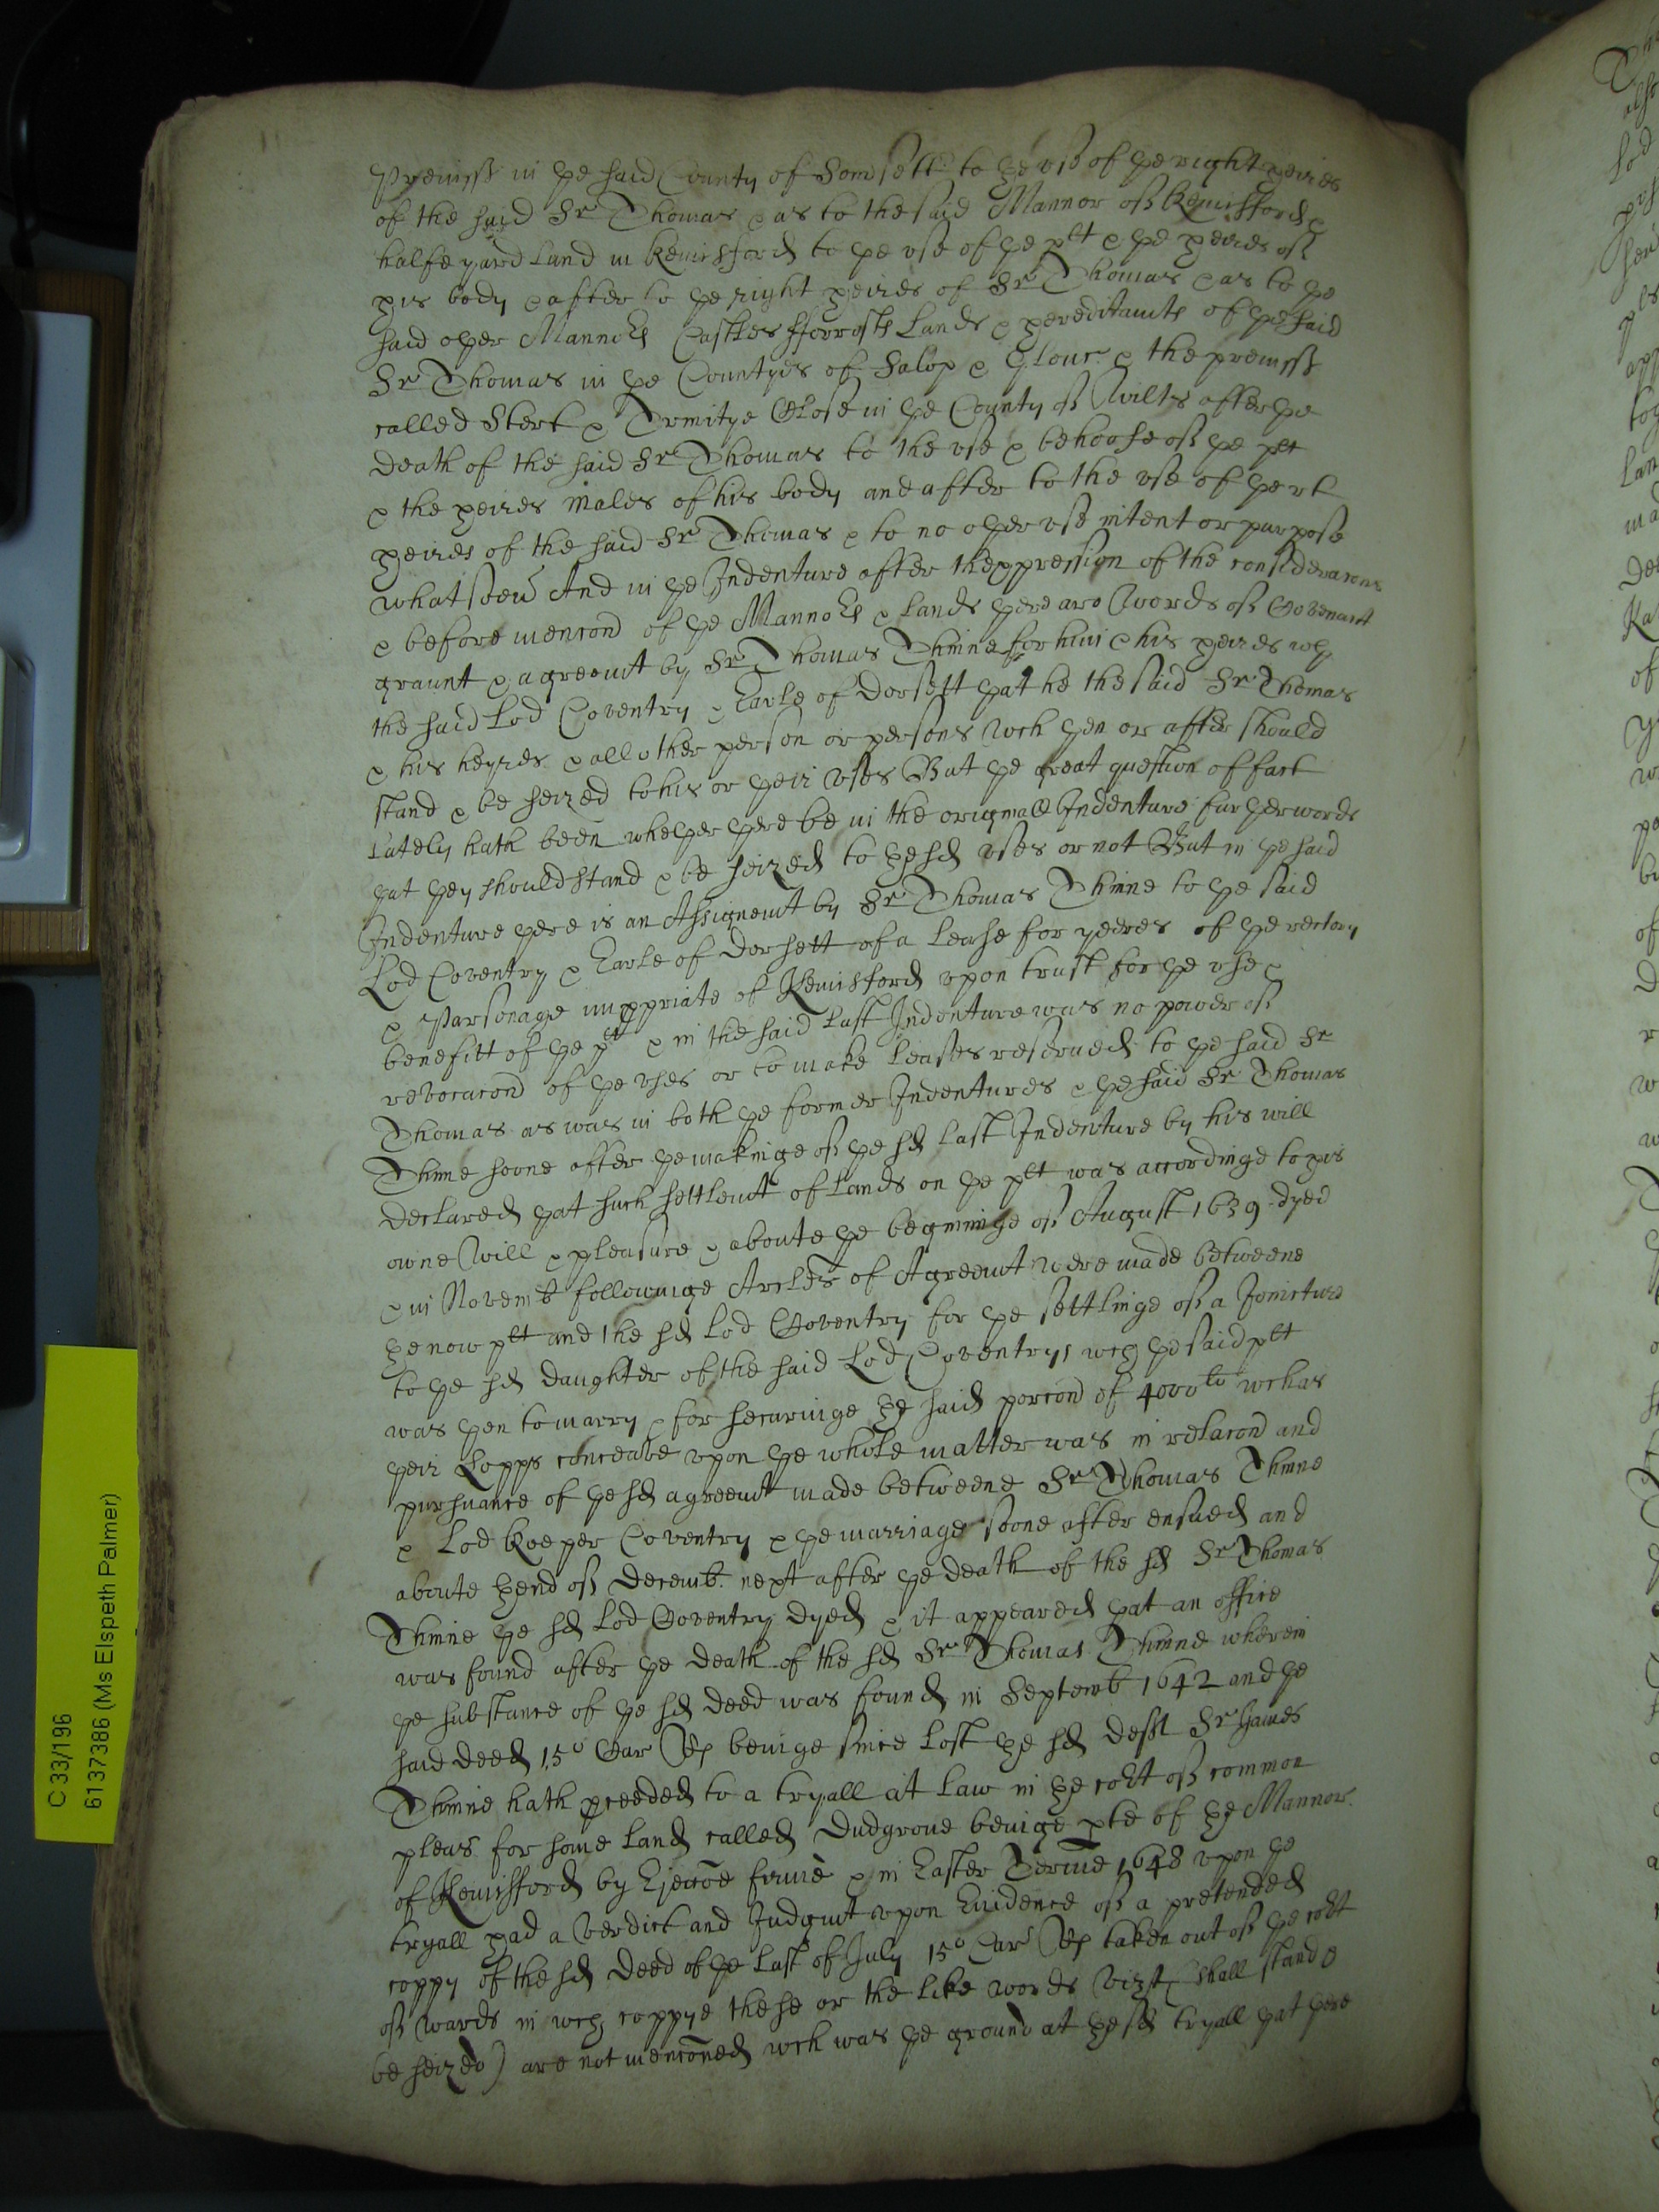 Premiss in the said County of Somsett to the use of the right heires
of the said Sr Thomas & as to the said Mannor of Kemisford &
halfe yard Land in Kemisford to the use of the plt & the heires of
his body & after to the right heires of Sr Thomas & as to the
said other Mannors Castles fforrosts Lands & hereditamts of the said
Sr Thomas in the Countyes of Salop & Glouc & the premiss
called Stert & Ermitye Close in the County of Wilts after the
death of the said Sr Thomas to the use & behoofe of the plt
& the heires males of his body and after to the use of the rt
heires of the said Sr Thomas & to no other use intent or purpose
whatsoevr And in the Indenture after the expression of the consideracons
& before mencond of the Mannors & Lands there are words of Covenant
graunt & agreemt by Sr Thomas Thinne for him & his heires wth
the said Lod Coventry & Earle of Dorsett that he the said Sr Thomas
& his heyres & all other person or persons wch then or after should
stand & be seized to his or their uses But the great question of fact
lately hath been whether there be in the originall Indenture further words
that they should stand & be seized to the sd uses or not But in the said
Indenture there is an Assignemt by Sr Thomas Thinne to the said
Lod Coventry & Earle of Dorsett of a Lease for yeeres of the rectory
& Parsonage impropriate of Kemisford upon trust for the use &
benefitt of the plt & in the said last Indenture was no power of
revocacond of the uses or to make Leases reserved to the said Sr
Thomas as was in both the former Indentures & the said Sr Thomas
Thinne soone after the makinge of the sd last Indenture by his will
declared that such settlemt of Lands on the plt was accordinge to his
owne will & pleasure & aboute the beginninge of August 1639 dyed
& in Novemb followinge Arcles of Agreemt were made betweene
the now plt and the sd Lod Coventry for the settlinge of a Jointure
to the sd daughter of the said Lod Coventrys wch the said plt
was then to marry & for securinge the said porcond of 4000li wch as
their Lopps conceave upon the whole matter was in relacond and
pursuance of the sd agreemt made betweene Sr Thomas Thinne
& Lod Keeper Coventry & the marriage soone after ensued and
aboute thend of Decemb. next after the death of the sd Sr Thomas
Thinne the sd Lod Coventry dyed & it appeared that an office
was found after the death of the sd Sr Thomas Thinne wherein
the substance of the sd deed was found in Septemb 1642 and the
said deed 15o Car Rs beinge since lost the sd deft Sr James
Thinne hath pceeded to a tryall at Law in the cort of common
pleas for some Land called Dudgrove beinge pte of the Mannor
of Kemisford by Ejeccoe firme & in Easter Terme 1648 upon the
tryall had a verdict and Judgmt upon Evidence of a pretended
coppy of the sd Deed of the last of July 15o Car Rs taken out of the cort
of wards in wch coppye these or the like words vizt (shall stand &
be seized) are not menconed wch was the ground at the sd tryall that there
C 33/196
6137386 (Ms Elspeth Palmer)